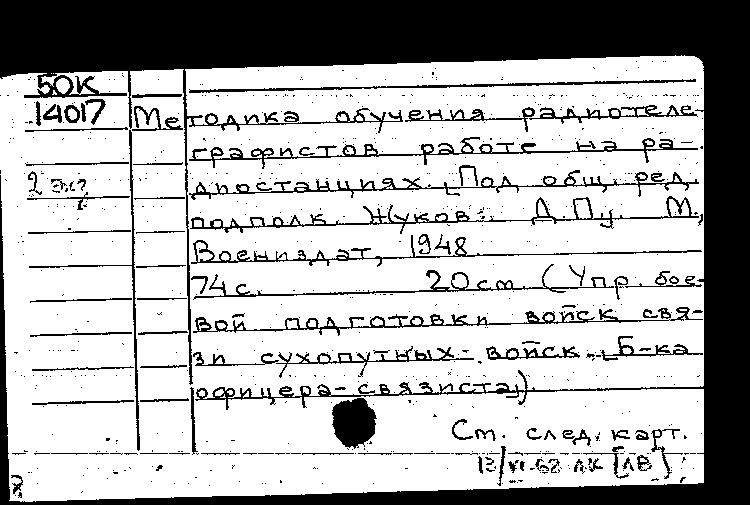 50К
14017 Методика обучения радиотеле-
графистов работе на ра-
2 экз диостанциях. Под общ. ред.
подполк. Жукова Д. П. М.,
Воениздат, 1948.
74 с. 20 см. (Упр. бое-
вой подготовки войск свя-
зи сухопутных войск. Б-ка
офицера-связиста)
См. след. карт.
VI-62 ЛК [ЛВ]